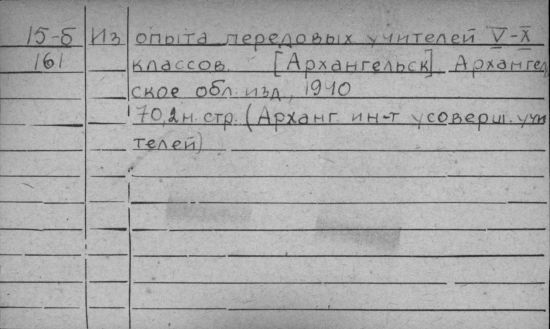 15-б Из опыта передовых учителей V-X
161 классов. [Архангельск] Архангел
ское обл. изд., 1940
70,2н. стр. (Арханг. ин-т усоверш. учи
телей)